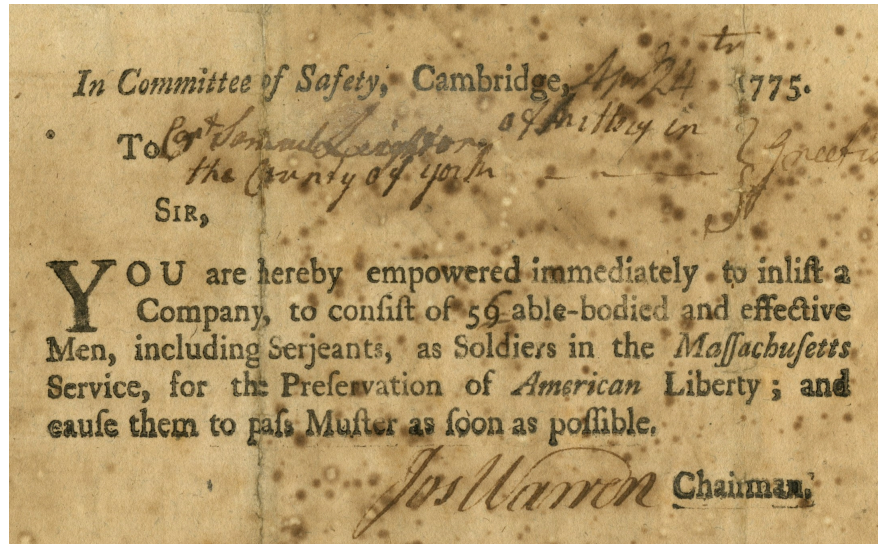 In Committee of Safety, Cambridge, Apr 24th 1775.
To Capt Samuel Leighton of Kittery in
the County of York Greeting
SIR,
YOU are hereby empowered immediately to inliſt a
Company, to conſiſt of 59 able-bodied and effective
Men, including Serjeants, as Soldiers in the Maſſachuſetts
Service, for the Preſervation of American Liberty; and
cauſe them to paſs Muſter as ſoon as poſſible.
Jos Warren Chairman.